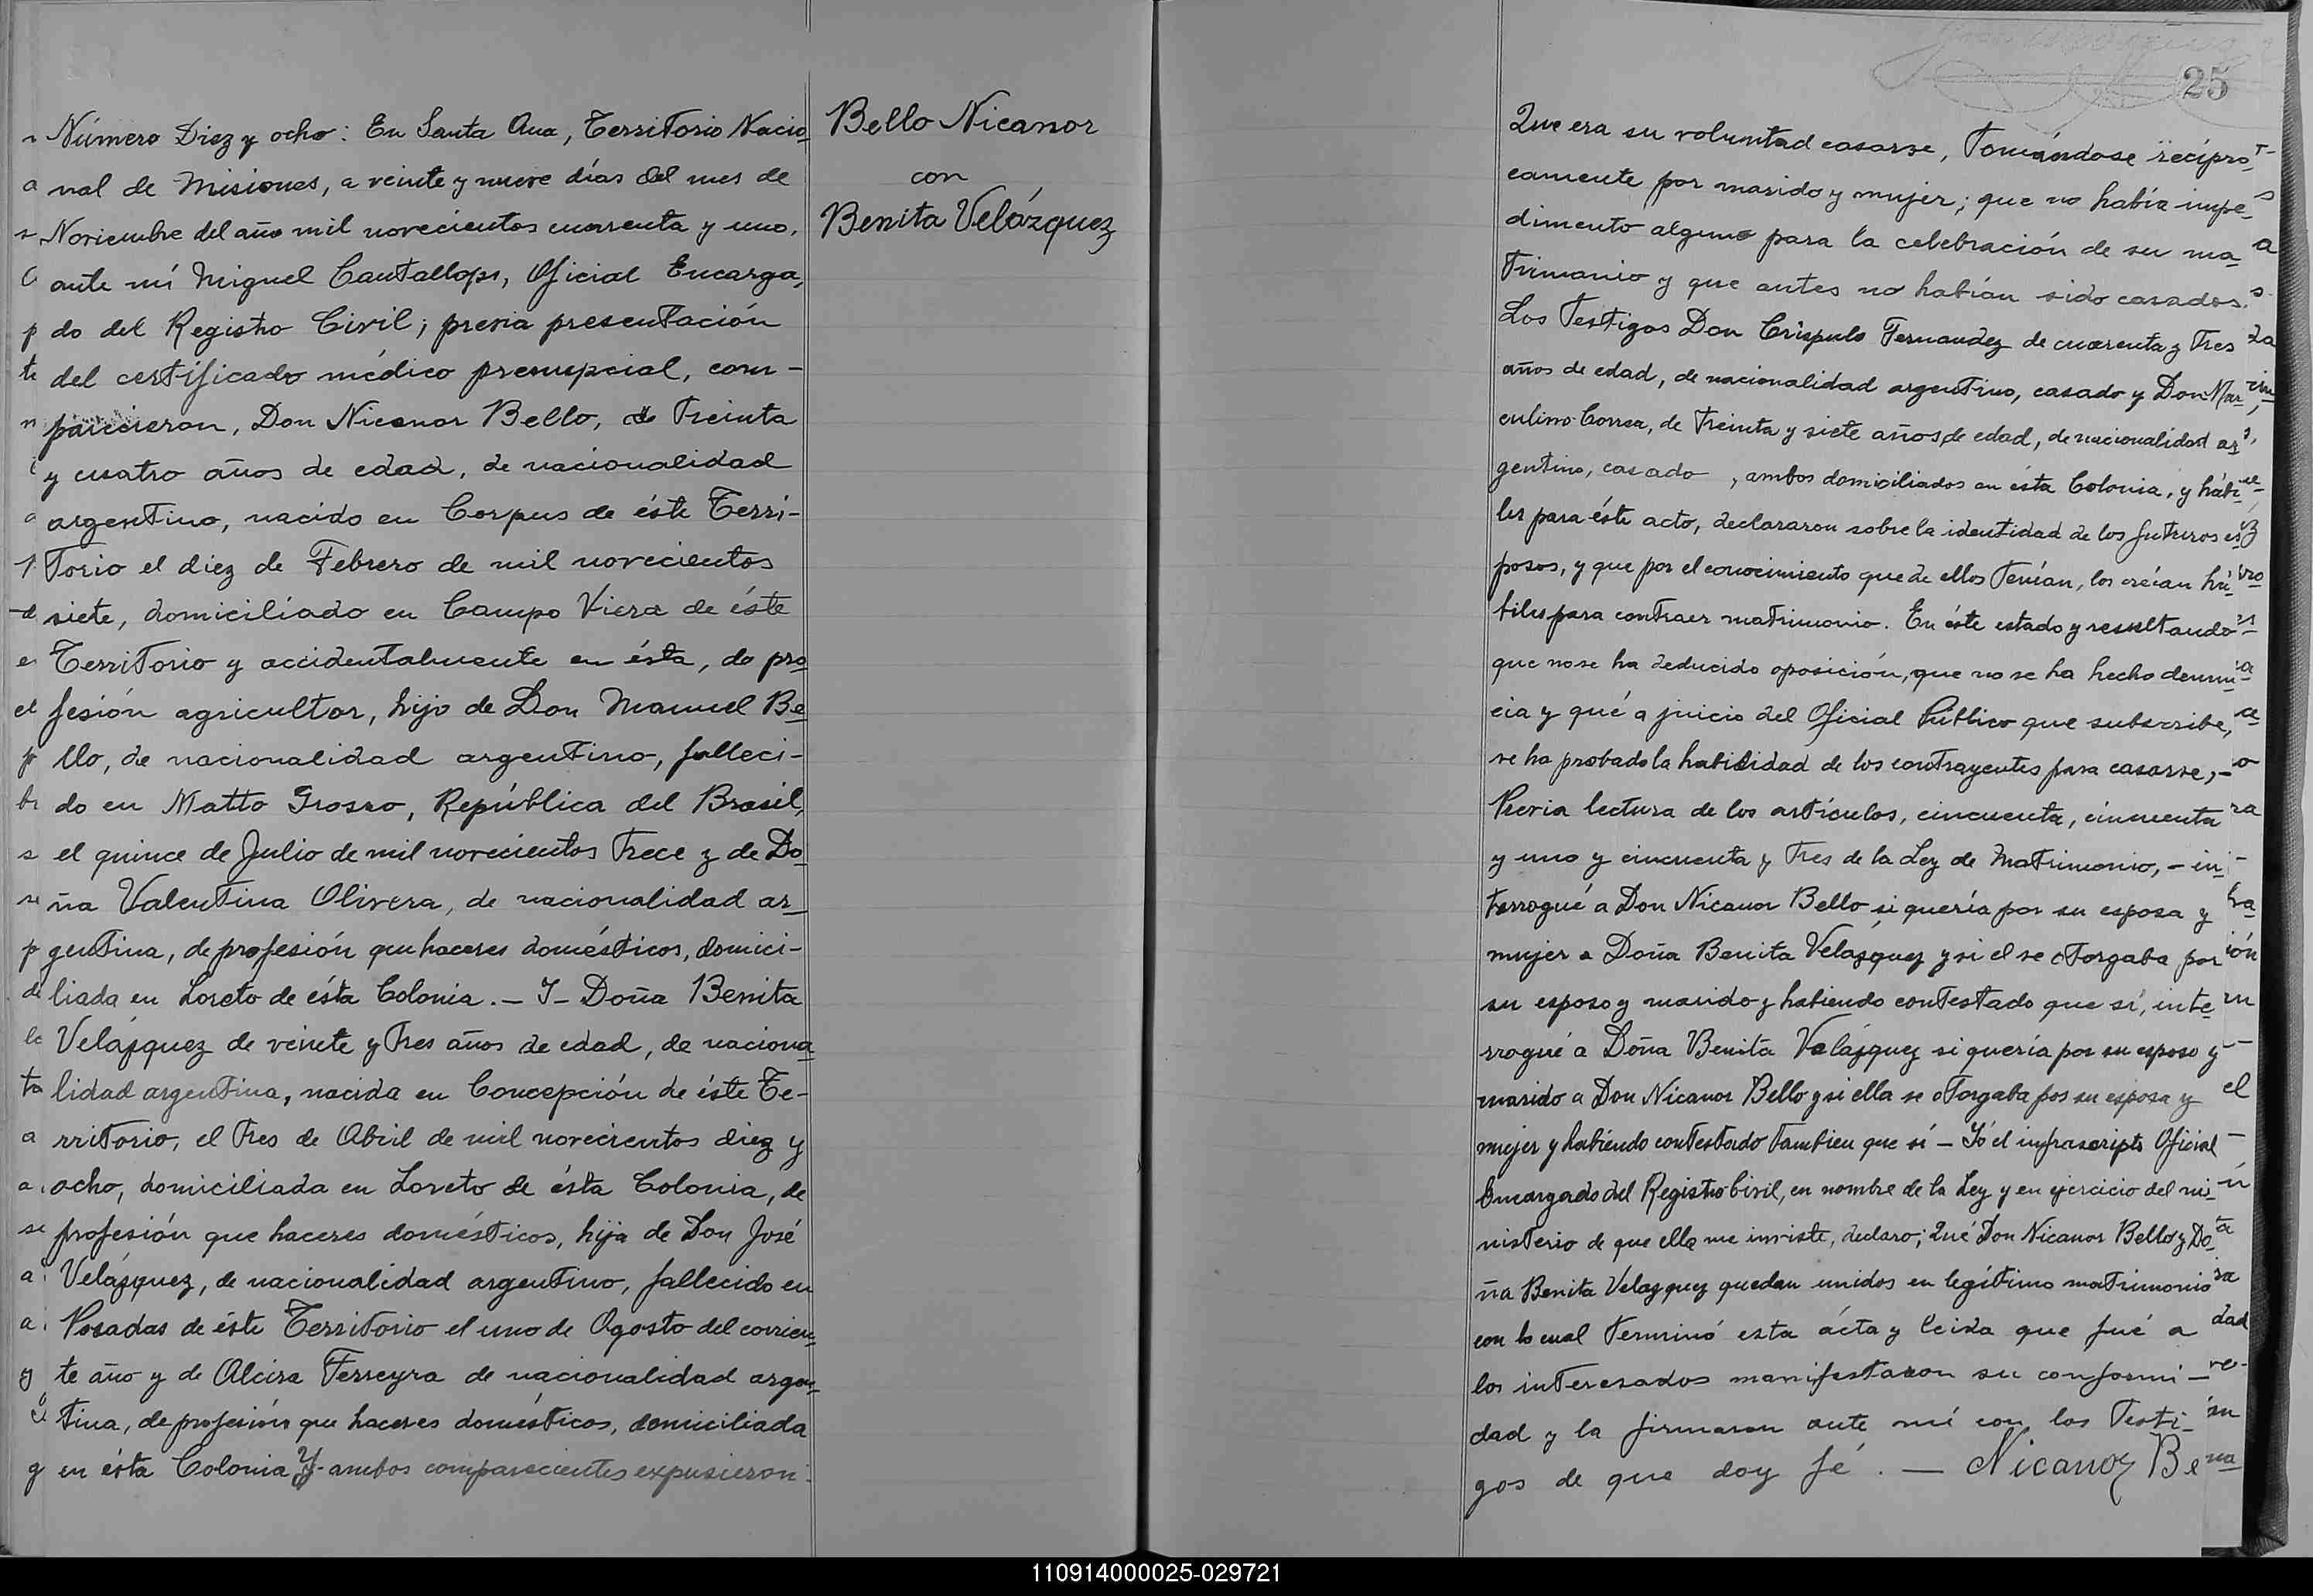 Número Diez y ocho: En Santa Ana, Territorio Nacio
nal de Misiones, a veinte y nueve días del mes de
Noviembre del año mil novecientos cuarenta y uno,
ante mí Miguel Cantallops, Oficial Encarga,
do del Registro Civil; previa presentación
del certificado médico prenupcial, com-
parecieron, Don Nicanor Bello, de treinta
y cuatro años de edad, de nacionalidad
argentino, nacido en Corpus de éste Terri-
torio el diez de Febrero de mil novecientos
siete, domiciliado en Campo Viera de éste
Territorio y accidentalmente en ésta, de pro
fesión agricultor, hijo de Don Manuel Be
llo, de nacionalidad argentino, falleci-
do en Matto Grosso, República del Brasil,
el quince de Julio de mil novecientos trece y de Do
ña Valentina Olivera, de nacionalidad ar
gentina, de profesión que haceres domésticos, domici-
liada en Loreto de ésta Colonia.- Y- Doña Benita
Velázquez de veinte y tres años de edad, de naciona
lidad argentina, nacida en Concepción de éste Te-
rritorio, el tres de Abril de mil novecientos diez y
ocho, domiciliada en Loreto de ésta Colonia, de
profesión que haceres domésticos, hija de Don José
Velázquez, de nacionalidad argentino, fallecido en
Posadas de éste Territorio el uno de Agosto del corrien
te año y de Alcira Ferreyra de nacionalidad argen
tina, de profesión que haceres domésticos, domiciliada
en ésta Colonia Y- ambos comparecientes expusieron:
Bello Nicanor
con
Benita Velázquez
25
Que era su voluntad casarse, tomándose recípro
camente por marido y mujer; que no había impe
dimento alguno para la celebración de su ma
trimonio y que antes no habían sido casados.
Los testigos Don Críspulo Fernandez de cuarenta y tres
años de edad, de nacionalidad argentino, casado y Don Mar
culino Correa, de treinta y siete años de edad, de nacionalidad ar
gentino, casado , ambos domiciliados en ésta Colonia, y hábi
les para éste acto, declararon sobre la identidad de los futuros es
posos, y que por el conocimiento que de ellos tenían, los creían há
biles para contraer matrimonio. En éste estado y resultando
que no se ha deducido oposición, que no se ha hecho denun
cia y qué a juicio del Oficial Público que subscribe,
se ha probado la habilidad de los contrayentes para casarse,-
Previa lectura de los artículos, cincuenta, cincuenta
y uno y cincuenta y tres de la Ley de Matrimonio,- in
terrogué a Don Nicanor Bello si quería por su esposa y
mujer a Doña Benita Velázquez y si el se otorgaba por
su esposo y marido y habiendo contestado que sí, inte
rrogué a Doña Benita Velázquez si quería por su esposo y
marido a Don Nicanor Bello y si ella se otorgaba por su esposa y
mujer y habiendo contestado tambien que sí - Yó el infrascripto Oficial
Encargado del Registro Civil, en nombre de la Ley y en ejercicio del mi
nisterio de que ella me inviste, declaro; Qué Don Nicanor Bello y Do
ña Benita Velazquez quedan unidos en legítimo matrimonio
con lo cual terminó esta ácta y leida que fué a
los interesados manifestaron su conformi-
dad y la firmaron ante mí con los testi-
gos de que doy fé. — Nicanor Be
110914000025-029721